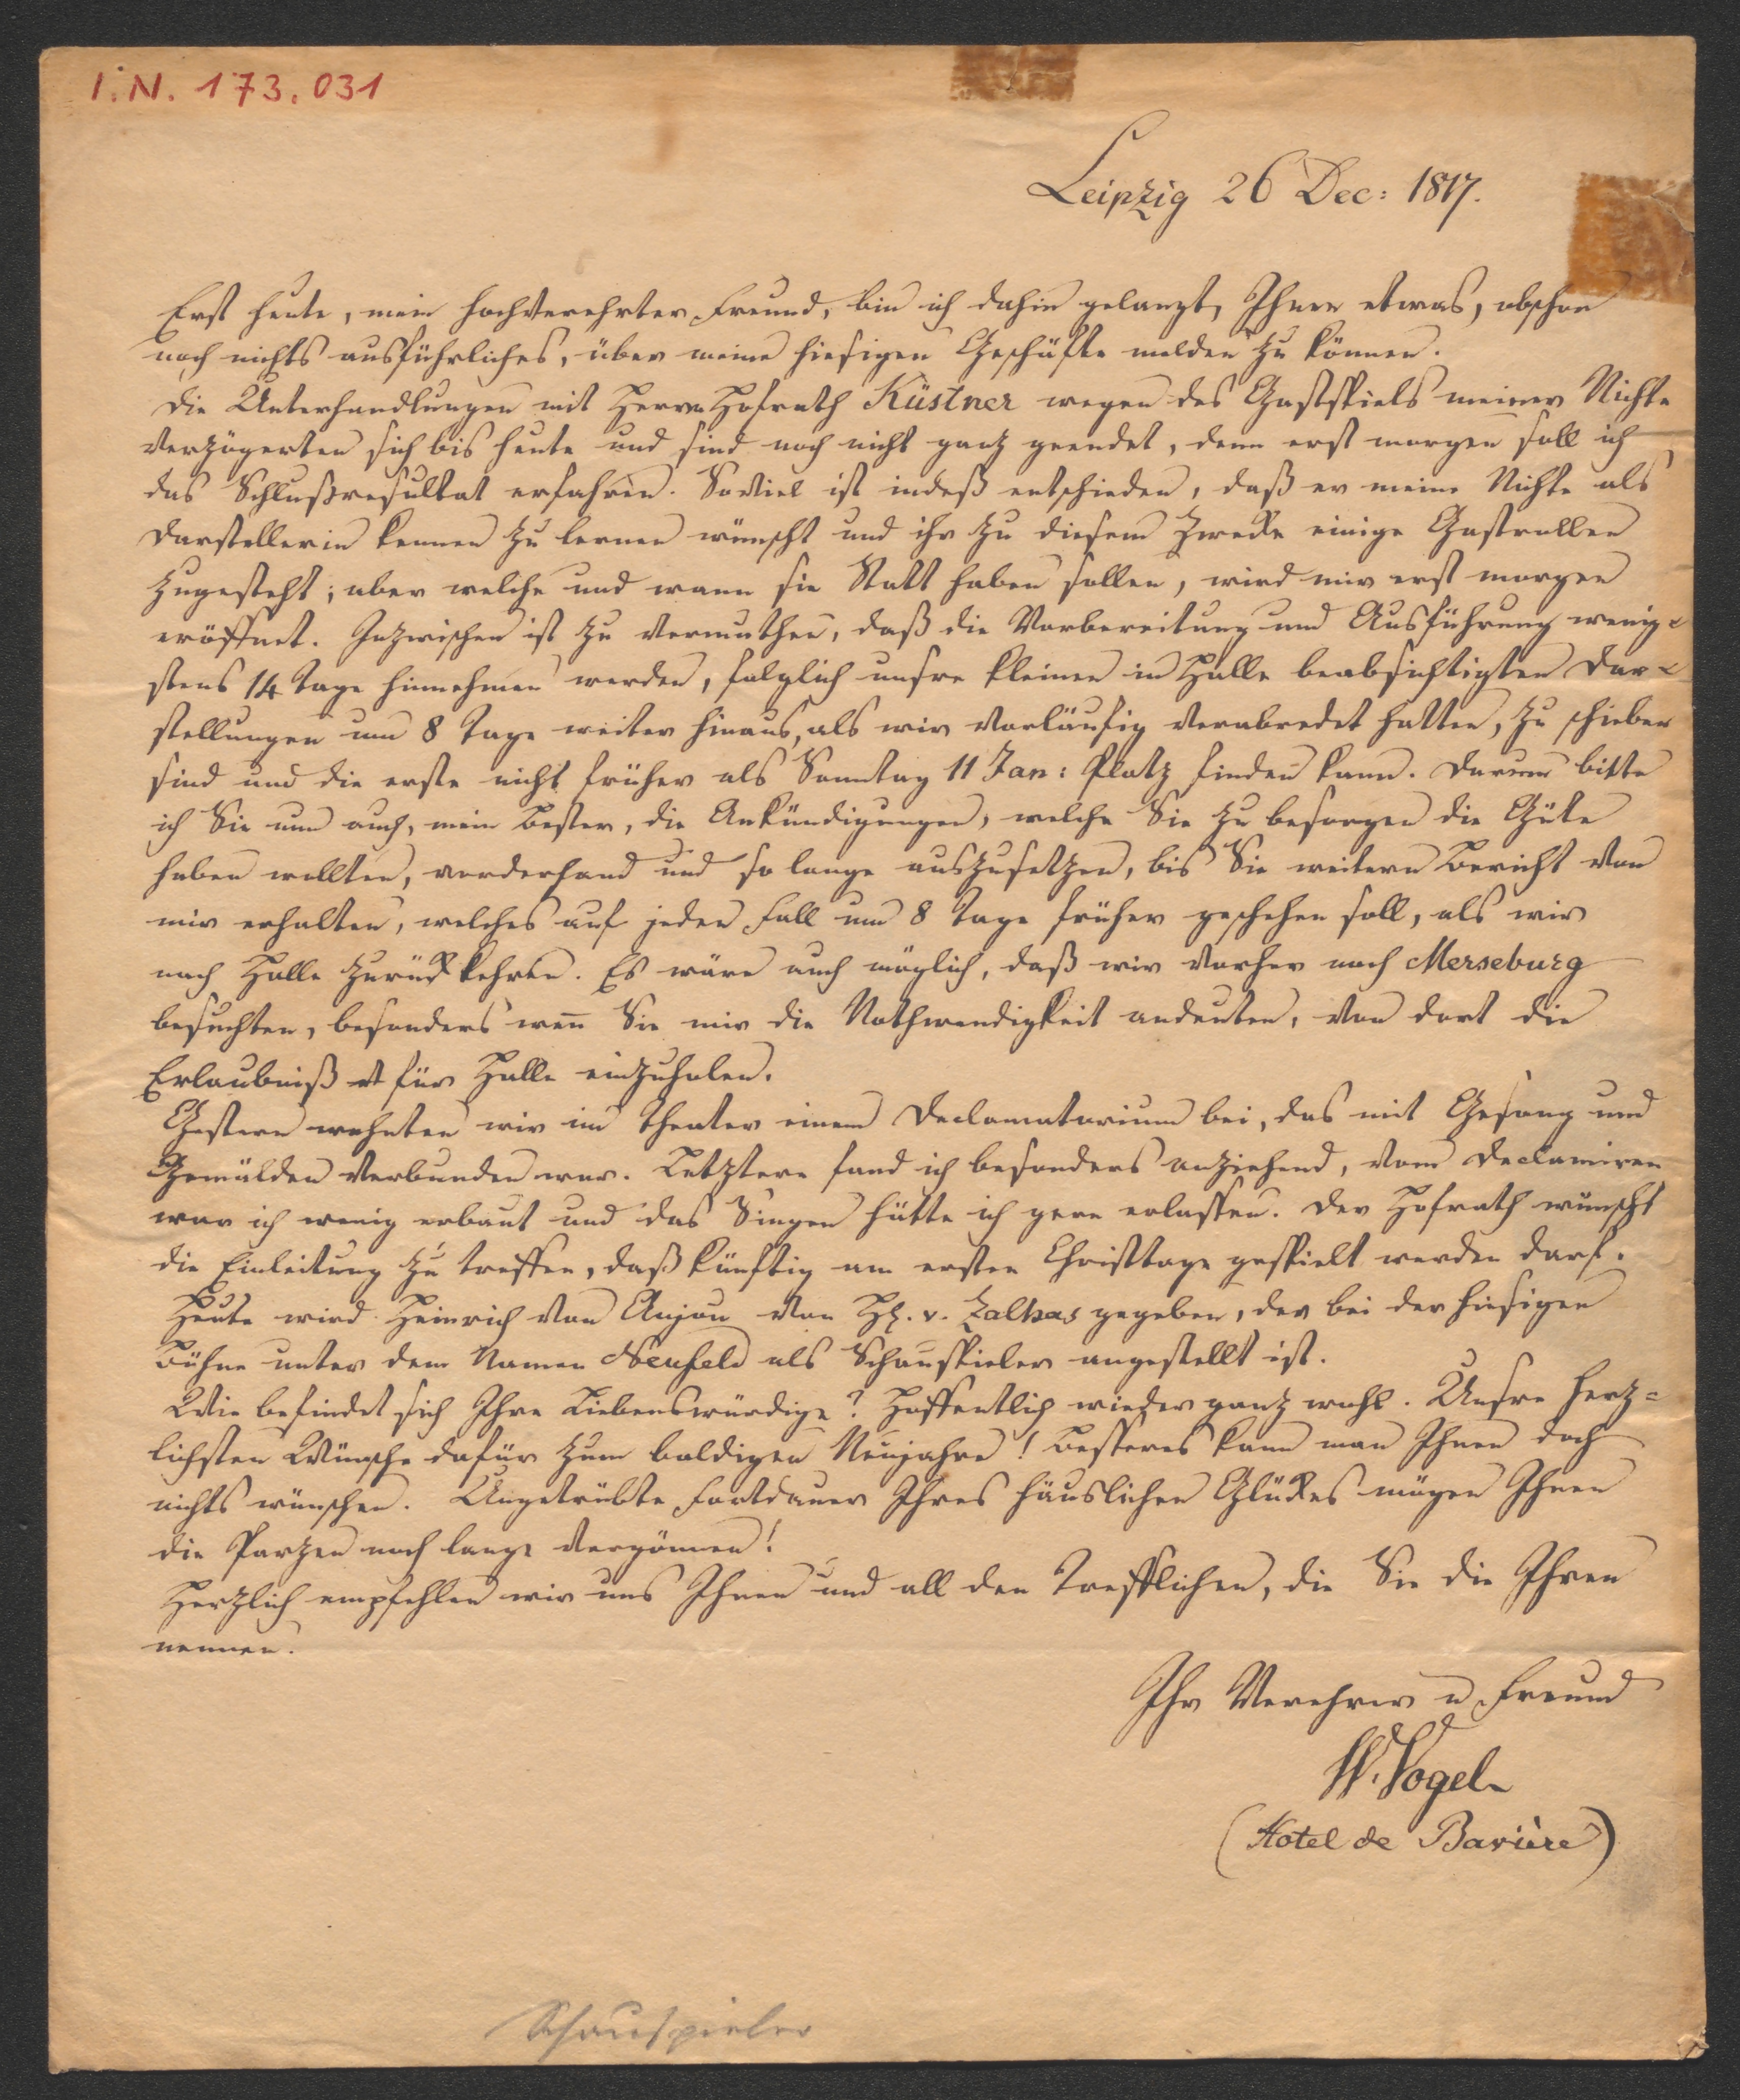 I.N. 173.031
Leipzig 26 Dec: 1817.
Erst heute, mein hochverehrter Freund, bin ich dahin gelangt, Ihnen etwas, obschon
noch nichts ausführliches, über meine hiesigen Geschäfte melden zu können.
Die Unterhandlungen mit Herrn Hofrath Küstner wegen des Gastspiels meiner Nichte
verzögerten sich bis heute und sind noch nicht ganz geendet, denn erst morgen soll ich
das Schlußresultat erfahren. Soviel ist indeß entschieden, daß er meine Nichte als
Darstellerin kennen zu lernen wünscht und ihr zu diesem Zwecke einige Gastrollen
zugesteht; aber welche und wann sie Statt haben sollen, wird mir erst morgen
eröffnet. Inzwischen ist zu vermuthen, daß die Vorbereitung und Ausführung wenig-
stens 14 Tage hinnehmen werden, folglich unsre kleinen in Halle beabsichtigten Dar-
stellungen um 8 Tage weiter hinaus, als wir vorläufig verabredet hatten, zu schieben
sind und die erste nicht früher als Sonntag 11 Jan: Platz finden kann. Darum bitte
ich Sie nun auch, mein Bester, die Ankündigungen, welche Sie zu besorgen die Güte
haben wollten, vorderhand und so lange auszusetzen, bis Sie weitern Bericht von
mir erhalten, welches auf jeden Fall um 8 Tage früher geschehen soll, als wir
nach Halle zurückkehren. Es wäre auch möglich, daß wir vorher noch Merseburg
besuchten, besonders wen̄ Sie mir die Nothwendigkeit andeuten, von dort die
Erlaubniß für Halle einzuholen.
Gestern wohnten wir im Theater einem Declamatorium bei, das mit Gesang und
Gemälden verbunden war. Letztere fand ich besonders anziehend, vom Declamiren
war ich wenig erbaut und das Singen hätte ich gern erlassen. Der Hofrath wünscht
die Einleitung zu treffen, daß künftig am ersten Christtage gespielt werden darf.
Heute wird Heinrich von Anjou von H. v. Zalhas gegeben, der bei der hiesigen
Bühne unter dem Namen Neufeld als Schauspieler angestellt ist.
Wie befindet sich Ihre Liebenswürdige? Hoffentlich wieder ganz wohl. Unsre herz-
lichsten Wünsche dafür zum baldigen Neujahre! Besseres kann man Ihnen doch
nichts wünschen. Ungetrübte Fortdauer Ihres häuslichen Glückes mögen Ihnen
die Parzen noch lange vergönnen!
Herzlich empfehlen wir uns Ihnen und all den Trefflichen, die Sie die Ihren
nennen.
Ihr Verehrer u Freund
W. Vogel
(Hotel de Bavière)
Schauspieler